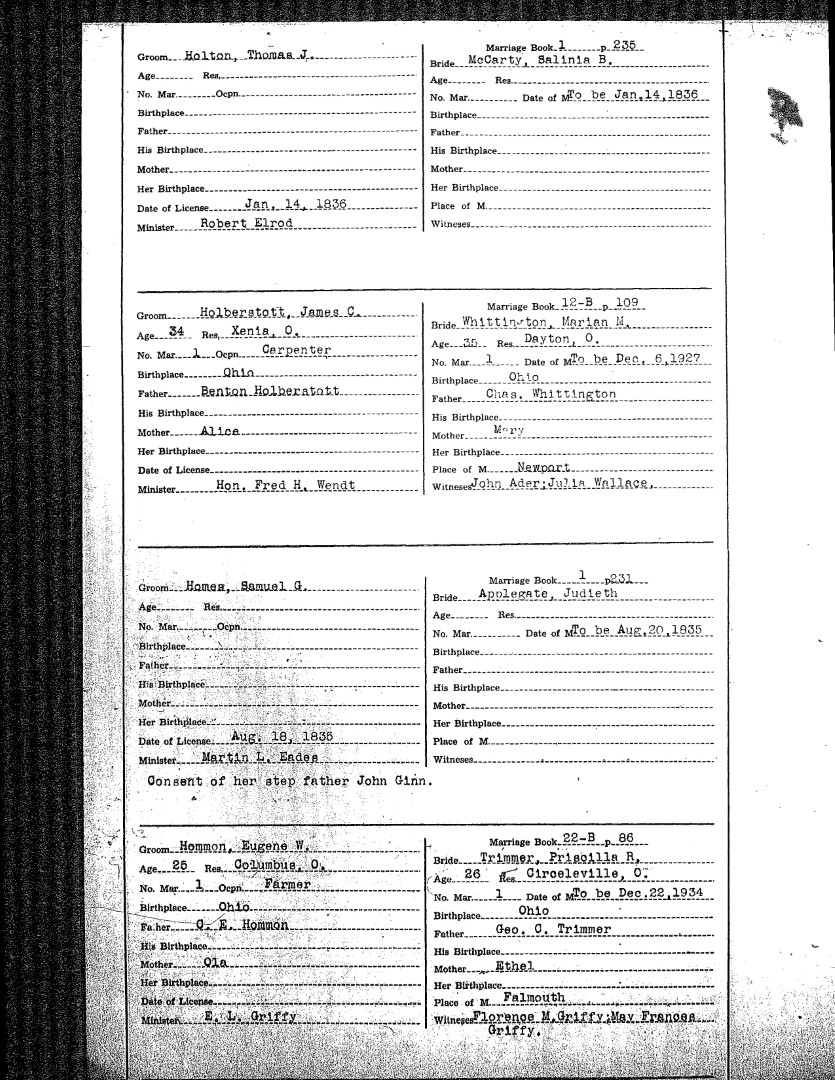 Marriage Book 1 p 235
Groom Holton, Thomas J.
Bride McCarty, Salinia B.
Age Res.
Age Res.
No. Mar. Ocpn.
No. Mar. Date of M To be Jan.14,1836
Birthplace
Birthplace
Father
Father
His Birthplace
His Birthplace
Mother
Mother
Her Birthplace
Her Birthplace
Date of License Jan. 14, 1836
Place of M.
Minister Robert Elrod
Witnesses
Marriage Book 12-B p 109
Groom Holberstott, James C.
Bride Whittington, Marian M.
Age 34 Res. Xenia, O.
Age 35 Res. Dayton, O.
No. Mar. 1 Ocpn. Carpenter
No. Mar. 1 Date of M To be Dec. 6,1927
Birthplace Ohio
Birthplace Ohio
Father Benton Holberstott
Father Chas. Whittington
His Birthplace
His Birthplace
Mother Alice
Mother Mary
Her Birthplace
Her Birthplace
Date of License
Place of M. Newport
Minister Hon. Fred H. Wendt
Witneses John Ader;Julia Wallace.
Marriage Book 1 p231
Groom Homes, Samuel G.
Bride Applegate, Judieth
Age Res.
Age Res.
No. Mar. Ocpn.
No. Mar. Date of M To be Aug.20,1835
Birthplace
Birthplace
Father
Father
His Birthplace
His Birthplace
Mother
Mother
Her Birthplace
Her Birthplace
Date of License Aug. 18, 1835
Place of M.
Minister Martin L. Eades
Witneses
Consent of her step father John Ginn.
Marriage Book 22-B p 86
Groom Hommon, Eugene W.
Bride Trimmer, Priscilla R.
Age 25 Res. Columbus, O.
Age 26 Res Circleville, O.
No. Mar. 1 Ocpn. Farmer
No. Mar. 1 Date of M To be Dec.22,1934
Birthplace Ohio
Birthplace Ohio
Father C. E. Hommon
Father Geo. C. Trimmer
His Birthplace
His Birthplace
Mother Ola
Mother Ethel
Her Birthplace
Her Birthplace
Date of License
Place of M. Falmouth
Minister E. L. Griffy
Witneses Florence M.Griffy;May Frances
Griffy.